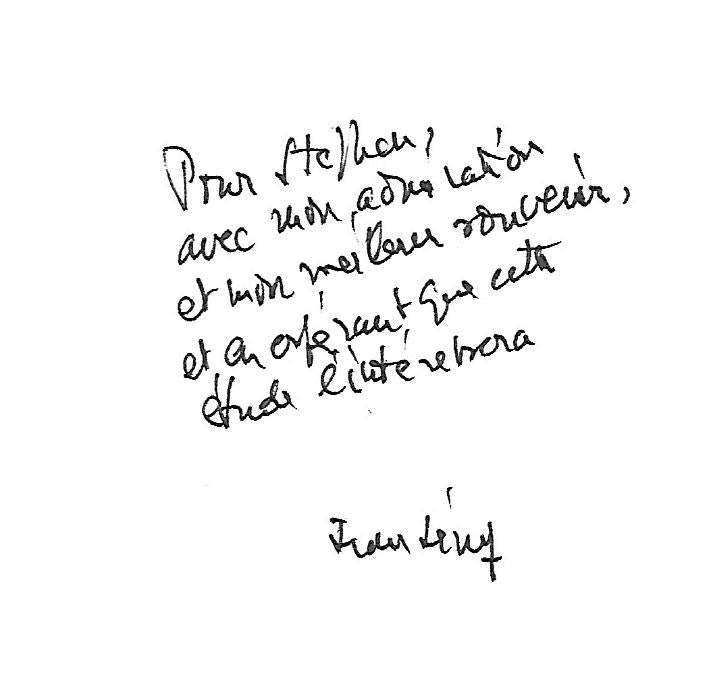 Pour Stephan,
avec mon admiration
et mon meilleur souvenir,
et en espérant que cette
étude l'intéressera
Jean